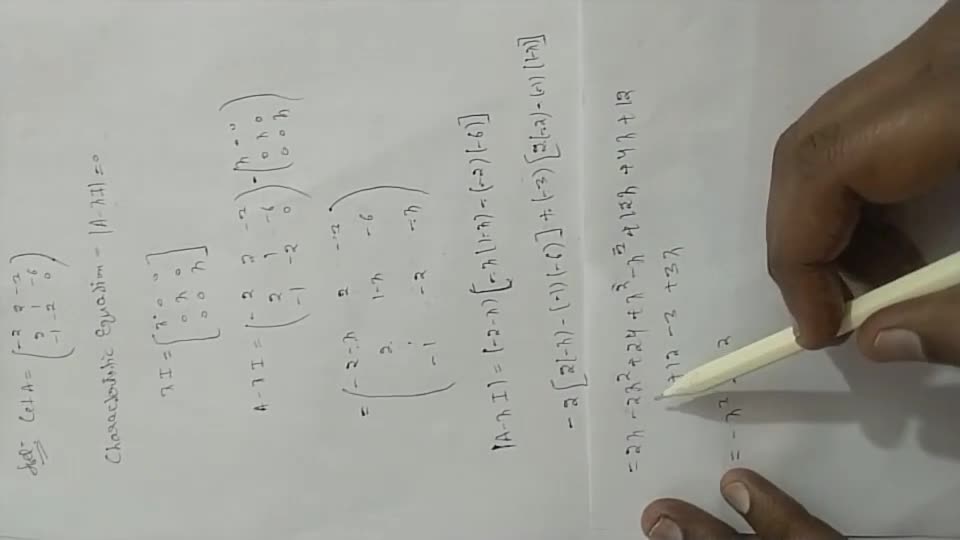 Sol- Let A = (-2 2 -3
2 1 -6
-1 -2 0)
Characteristic Equation = |A-λI| = 0
λI = [λ 0 0
0 λ 0
0 0 λ]
A-λI = (-2 2 -3
2 1 -6
-1 -2 0) - (λ 0 0
0 λ 0
0 0 λ)
= (-2-λ 2 -3
2 1-λ -6
-1 -2 -λ)
|A-λI| = (-2-λ)[-λ(1-λ)-(-2)(-6)]
-2[2(-λ)-(-1)(-6)]+(-3)[2(-2)-(-1)(1-λ)]
+12-3+3λ
= -λ